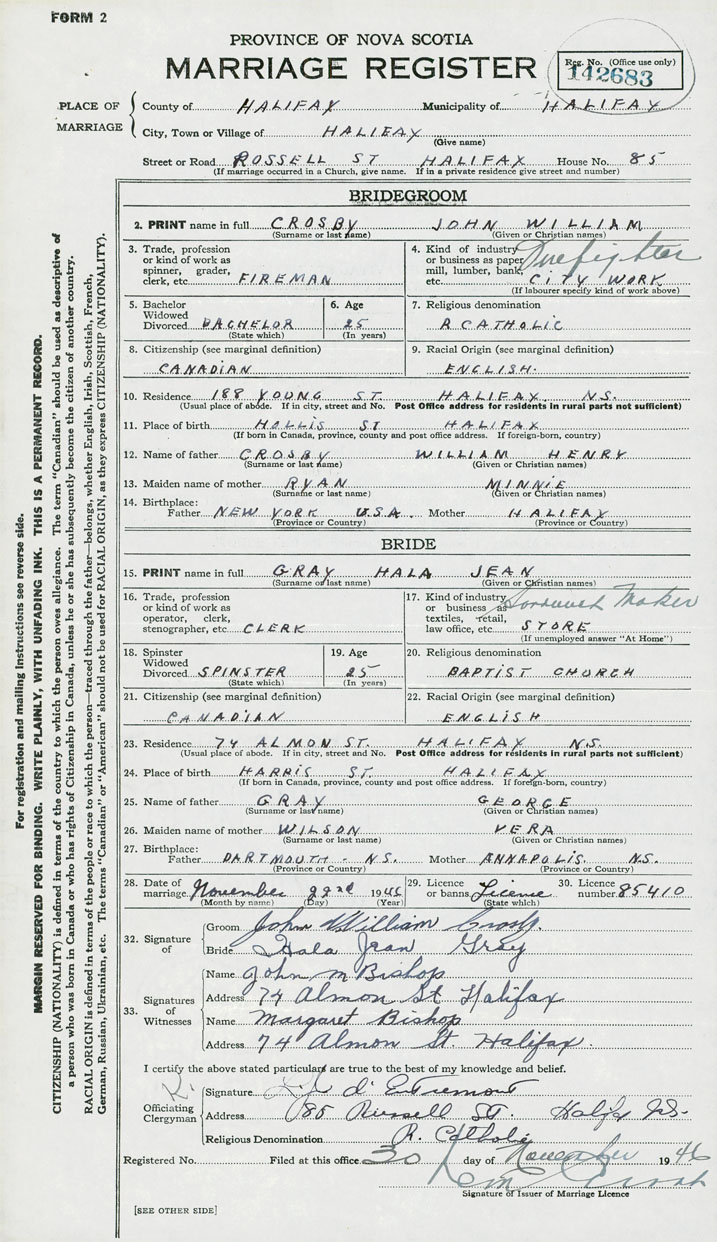 FORM 2
PROVINCE OF NOVA SCOTIA
MARRIAGE REGISTER
Reg. No. (Office use only)
142683
PLACE OF MARRIAGE
County of HALIFAX Municipality of HALIFAX
City, Town or Village of HALIFAX
(Give name)
Street or Road ROSSELL ST HALIFAX House No. 85
(If marriage occurred in a Church, give name. If in a private residence give street and number)
BRIDEGROOM
2. PRINT name in full CROSBY JOHN WILLIAM
(Surname or last name) (Given or Christian names)
3. Trade, profession or kind of work as spinner, grader, clerk, etc FIREMAN
4. Kind of industry or business as paper mill, lumber, bank, etc. Firefighter CITY WORK
(If labourer specify kind of work above)
5. Bachelor Widowed Divorced BACHELOR
(State which)
6. Age 25
(In years)
7. Religious denomination
R CATHOLIC
8. Citizenship (see marginal definition)
CANADIAN
9. Racial Origin (see marginal definition)
ENGLISH.
10. Residence 188 YOUNG ST. HALIFAX N.S.
(Usual place of abode. If in city, street and No. Post Office address for residents in rural parts not sufficient)
11. Place of birth HOLLIS ST HALIFAX
(If born in Canada, province, county and post office address. If foreign-born, country)
12. Name of father CROSBY WILLIAM HENRY
(Surname or last name) (Given or Christian names)
13. Maiden name of mother RYAN MINNIE
(Surname or last name) (Given or Christian names)
14. Birthplace:
Father NEW YORK U.S.A. Mother HALIFAX
(Province or Country) (Province or Country)
BRIDE
15. PRINT name in full GRAY HALA JEAN
(Surname or last name) (Given or Christian names)
16. Trade, profession or kind of work as operator, clerk, stenographer, etc CLERK
17. Kind of industry or business as textiles, retail, law office, etc. Maker STORE
(If unemployed answer "At Home")
18. Spinster Widowed Divorced SPINSTER
(State which)
19. Age 25
(In years)
20. Religious denomination
BAPTIST CHURCH
21. Citizenship (see marginal definition)
CANADIAN
22. Racial Origin (see marginal definition)
ENGLISH
23. Residence 74 ALMON ST. HALIFAX N.S.
(Usual place of abode. If in city, street and No. Post Office address for residents in rural parts not sufficient)
24. Place of birth HARRIS ST. HALIFAX
(If born in Canada, province, county and post office address. If foreign-born, country)
25. Name of father GRAY GEORGE
(Surname or last name) (Given or Christian names)
26. Maiden name of mother WILSON VERA
(Surname or last name) (Given or Christian names)
27. Birthplace:
Father DARTMOUTH - N.S. Mother ANNAPOLIS. N.S.
(Province or Country) (Province or Country)
28. Date of marriage November 22nd 1946
(Month by name) (Day) (Year)
29. Licence or banns License
(State which)
30. Licence number 85410
32. Signature of
Groom John William Crosby
Bride Hala Jean Gray
33. Signatures of Witnesses
Name John M Bishop
Address 74 Almon St Halifax
Name Margaret Bishop
Address 74 Almon St. Halifax.
I certify the above stated particulars are true to the best of my knowledge and belief.
Officiating Clergyman
Signature d'Entremont
Address 85 Russell St. Halifx NS.
Religious Denomination R. Catholic
Registered No. Filed at this office 30 day of November 1946
Signature of Issuer of Marriage Licence
[SEE OTHER SIDE]
For registration and mailing instructions see reverse side.
MARGIN RESERVED FOR BINDING. WRITE PLAINLY, WITH UNFADING INK. THIS IS A PERMANENT RECORD.
CITIZENSHIP (NATIONALITY) is defined in terms of the country to which the person owes allegiance. The term "Canadian" should be used as descriptive of
a person who was born in Canada or who has rights of Citizenship in Canada, unless he or she has subsequently become the citizen of another country.
RACIAL ORIGIN is defined in terms of the people or race to which the person—traced through the father—belongs, whether English, Irish, Scottish, French,
German, Russian, Ukrainian, etc. The terms "Canadian" or "American" should not be used for RACIAL ORIGIN, as they express CITIZENSHIP (NATIONALITY).